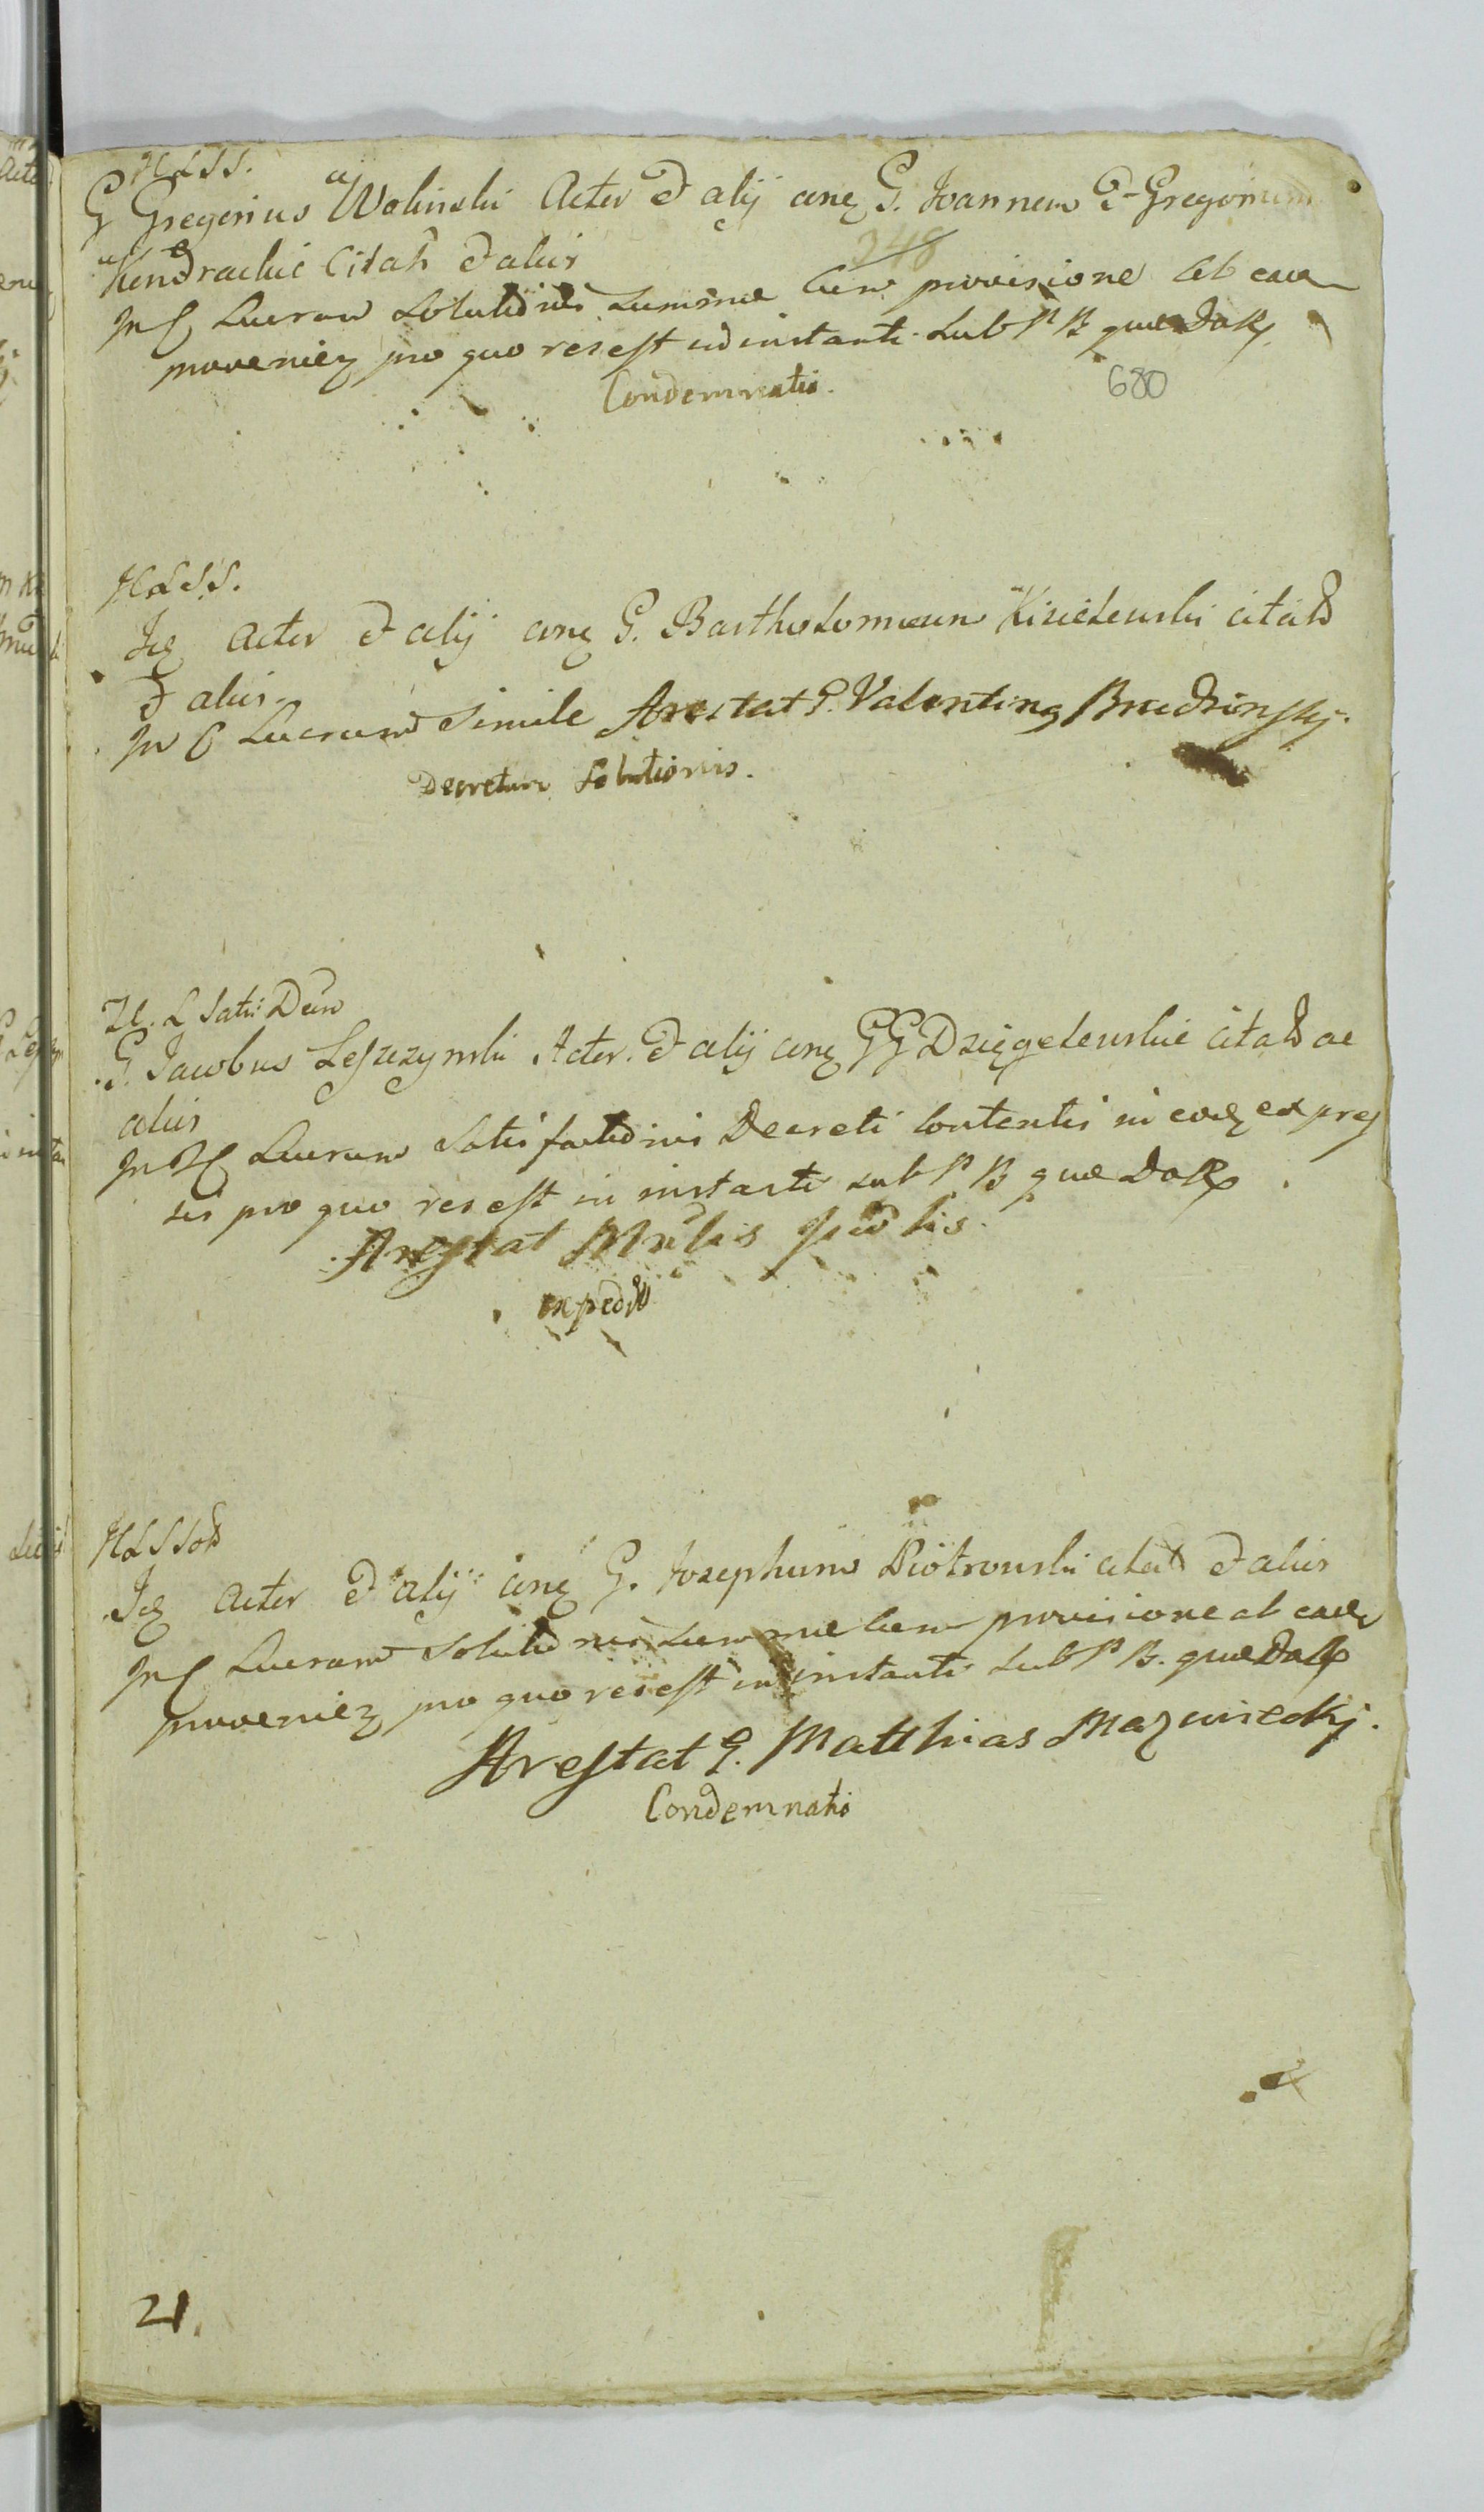 HLSS.
G Gregorius Wolinski Acter et alij cenq G. Joannem et Gregorium
Kendrackie Citatt et aliis
248
Luerum Solutionis Summae Cum provisione ab eade
proveniez pro quo res est ad instanti sub P B quae
Condemnatio.
680
HLSS.
Acter et alij cenq G. Bartholomeum Kisielewski citatt
et aliis
Luerum Simile Arestat G. Valenting Brudzinskj.
Decretum Solutionis.
H. L Satis Decr
G. Jacobus Leszczynski Acter. et alij cenq GG Dzięgelewskie citatt ac
aliis
Luerum Satisfactionis Decreti Contentis in eode expres
sis pro quo res est in instanti sub P B quae
Arestat
exped
HLSS
Acter et alij cenq G. Josephum Piotrowski citatt et aliis
Luerum Solutionis Summae Cum provisione ab eade
proveniez pro quo res est in instanti sub P B. quae
Arestat G. Matthias Mazwieckj.
Condemnatio
21.